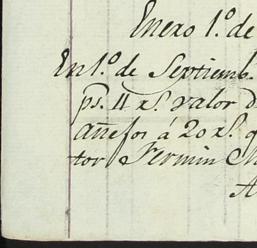 Enero 1.º de
En 1.º de Septiemb.
ps. 4 rs. valor d
añejos á 20 rs. q
tor Fermin
A